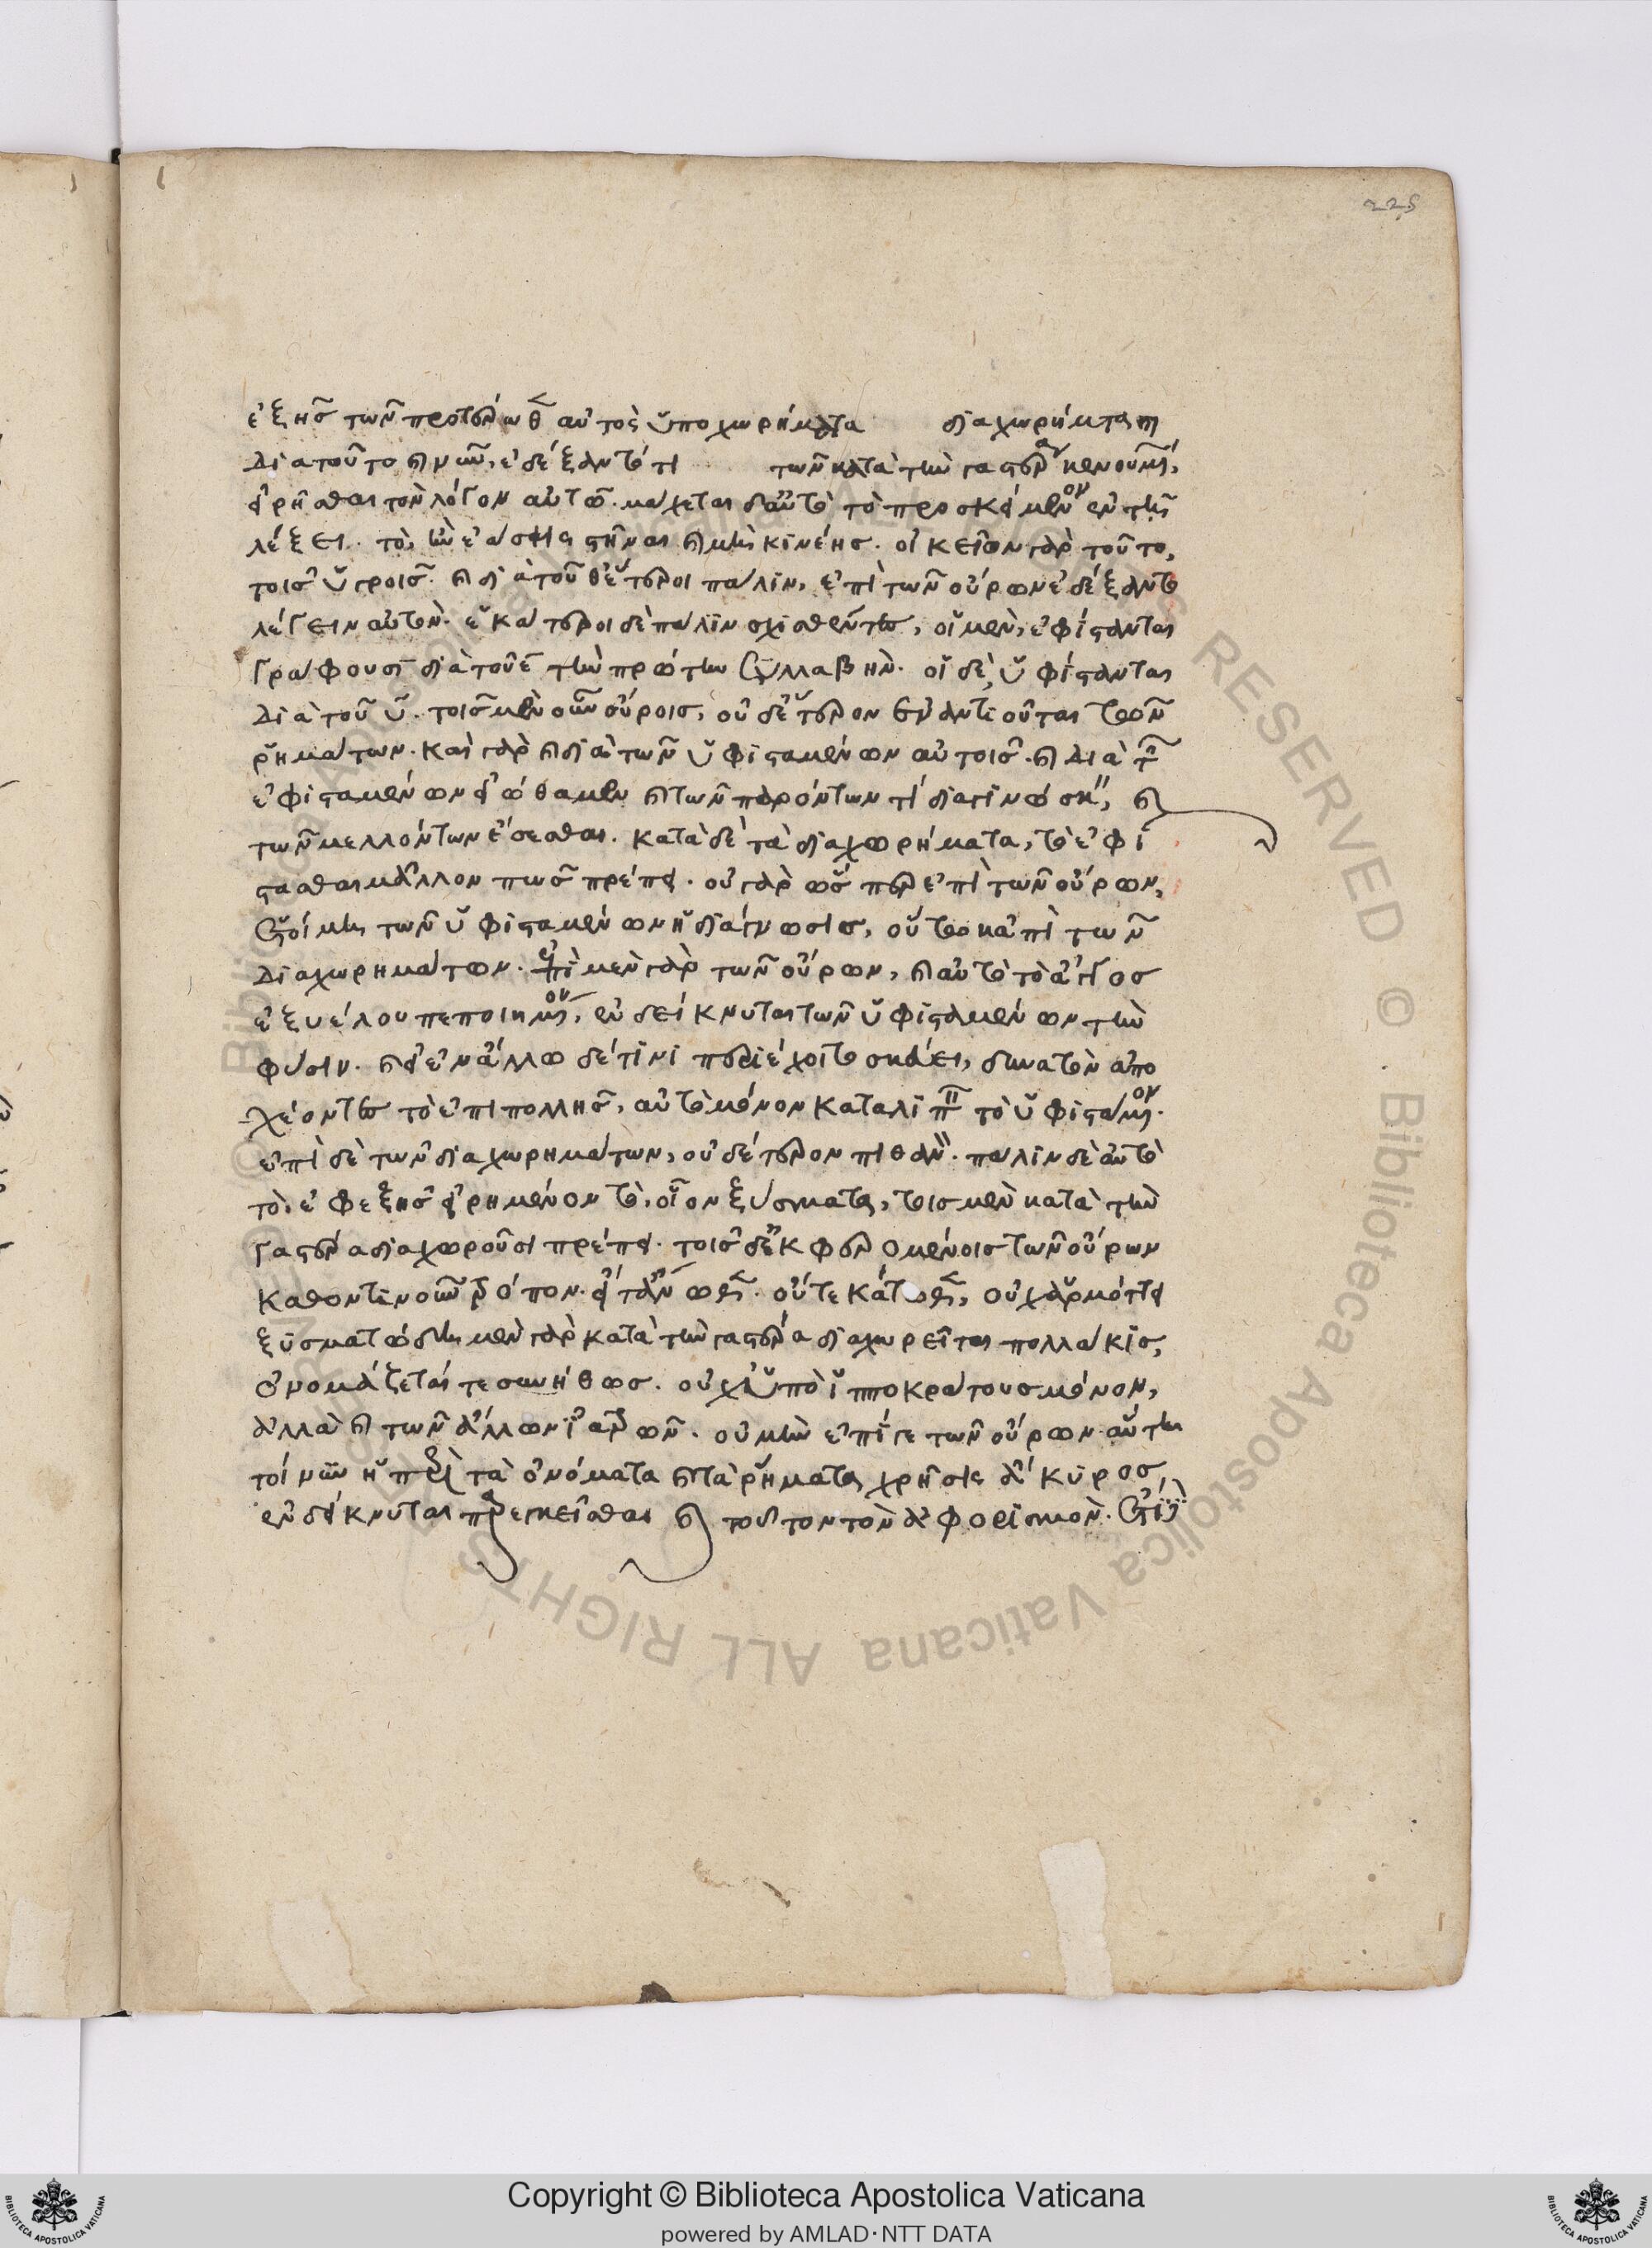 225
ἑξῆς τῶν προτέρων θ αὐτὸς ὑποχωρήματα διαχωρήματα
διατοῦτο καὶ νῦν, ἐδέξαντό τι τῶν κατὰ τὴν γαστέρα κενουμένων,
εἰρῆσθαι τὸν λόγον αὐτῶ. μάχεται δ' αὐτὸ τὸ προσκείμενον ἐν τῇ
λέξει. τὸ, ἢν ἐάσῃς στῆναι καὶ μὴ κινέῃς. οἰκεῖον γὰρ τοῦτο,
τοῖς ὑγροῖς. καὶ διὰ τοῦθ' ἕτεροι πάλιν, ἐπὶ τῶν οὔρων ἐδέξαντο
λέγειν αὐτόν. ἑκάτεροι δὲ πάλιν σχισθέντες, οἱ μὲν, ἐφίστανται
γράφουσι διὰ τοῦ ε τὴν πρώτην συλλαβήν. οἱ δὲ, ὑφίστανται
διὰ τοῦ υ. τοῖς μὲν οὖν οὔροις, οὐδέτερον ἐναντιοῦται τῶν
ῥημάτων. καὶ γὰρ καὶ διὰ τῶν ὑφισταμένων αὐτοῖς. καὶ διὰ τῶν
ἐφισταμένων εἰώθαμεν καὶ τῶν παρόντων τι διαγινώσκειν, καὶ
τῶν μελλόντων ἔσεσθαι. κατὰ δὲ τὰ διαχωρήματα, τὸ ἐφί
στασθαι μᾶλλον πως πρέπει. οὐ γὰρ ὥσπερ ἐπὶ τῶν οὔρων,
ἑτοίμη τῶν ὑφισταμένων ἡ διάγνωσις, οὕτω κἀπὶ τῶν
διαχωρημάτων. ἐπὶ μὲν γὰρ τῶν οὔρων, καὶ αὐτὸ τὸ ἀγγος
ἐξ ὑέλου πεποιημένον, ἐνδείκνυται τῶν ὑφισταμένων τὴν
φύσιν. καὶ εἰ ἐν ἄλλω δέ τινι περιέχοιτο σκεύει, δυνατὸν ἀπο
χέοντας τὸ ἐπιπολῆς, αὐτὸ μόνον καταλιπεῖν τὸ ὑφιστάμενον.
ἐπὶ δὲ τῶν διαχωρημάτων, οὐδέτερον πιθανόν. πάλιν δὲ αὐτὸ
τὸ, ἐφεξῆς εἰρημένον τὸ, οἷον ξύσματα, τοῖς μὲν κατὰ τὴν
γαστέρα διαχωροῦσι πρέπει. τοῖς δ' ἐκφερομένοις τῶν οὔρων
καθοντινοῦν τρόπον. εἴτ' ἄνωθεν. οὔτε κάτωθεν, οὐχ ἁρμόττει
ξυσματώδη μὲν γὰρ κατὰ τὴν γαστέρα διαχωρεῖται πολλάκις,
ὀνομάζεταί τε συνήθως. οὐχ ὑπὸ ἱπποκράτους μόνον,
ἀλλὰ καὶ τῶν ἄλλων ἰατρῶν. οὐ μὴν ἐπί γε τῶν οὔρων. αὕτη
τοίνυν ἡ περὶ τὰ ὀνόματα καὶ τὰ ῥήματα χρῆσις ἄκυρος,
ἐνδείκνυται παρεγκεῖσθαι καὶ τοῦτον τὸν ἀφορισμόν.
Copyright © Biblioteca Apostolica Vaticana
powered by AMLAD·NTT DATA